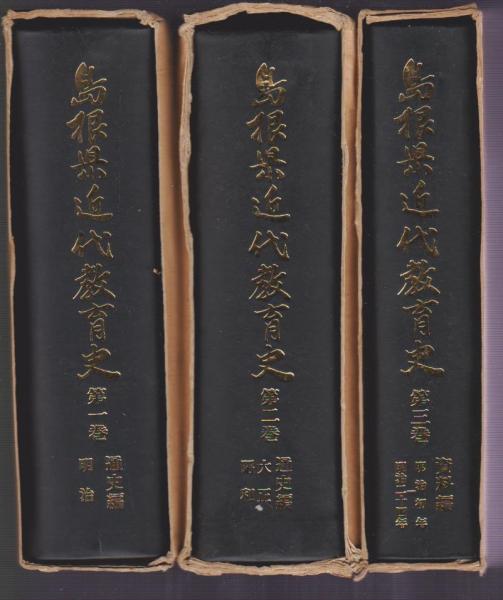 島根県近代教育史 第一巻
通史編
明治
島根県近代教育史 第二巻
通史編
大正
昭和
島根県近代教育史 第三巻
資料編
明治初年
明治二十年